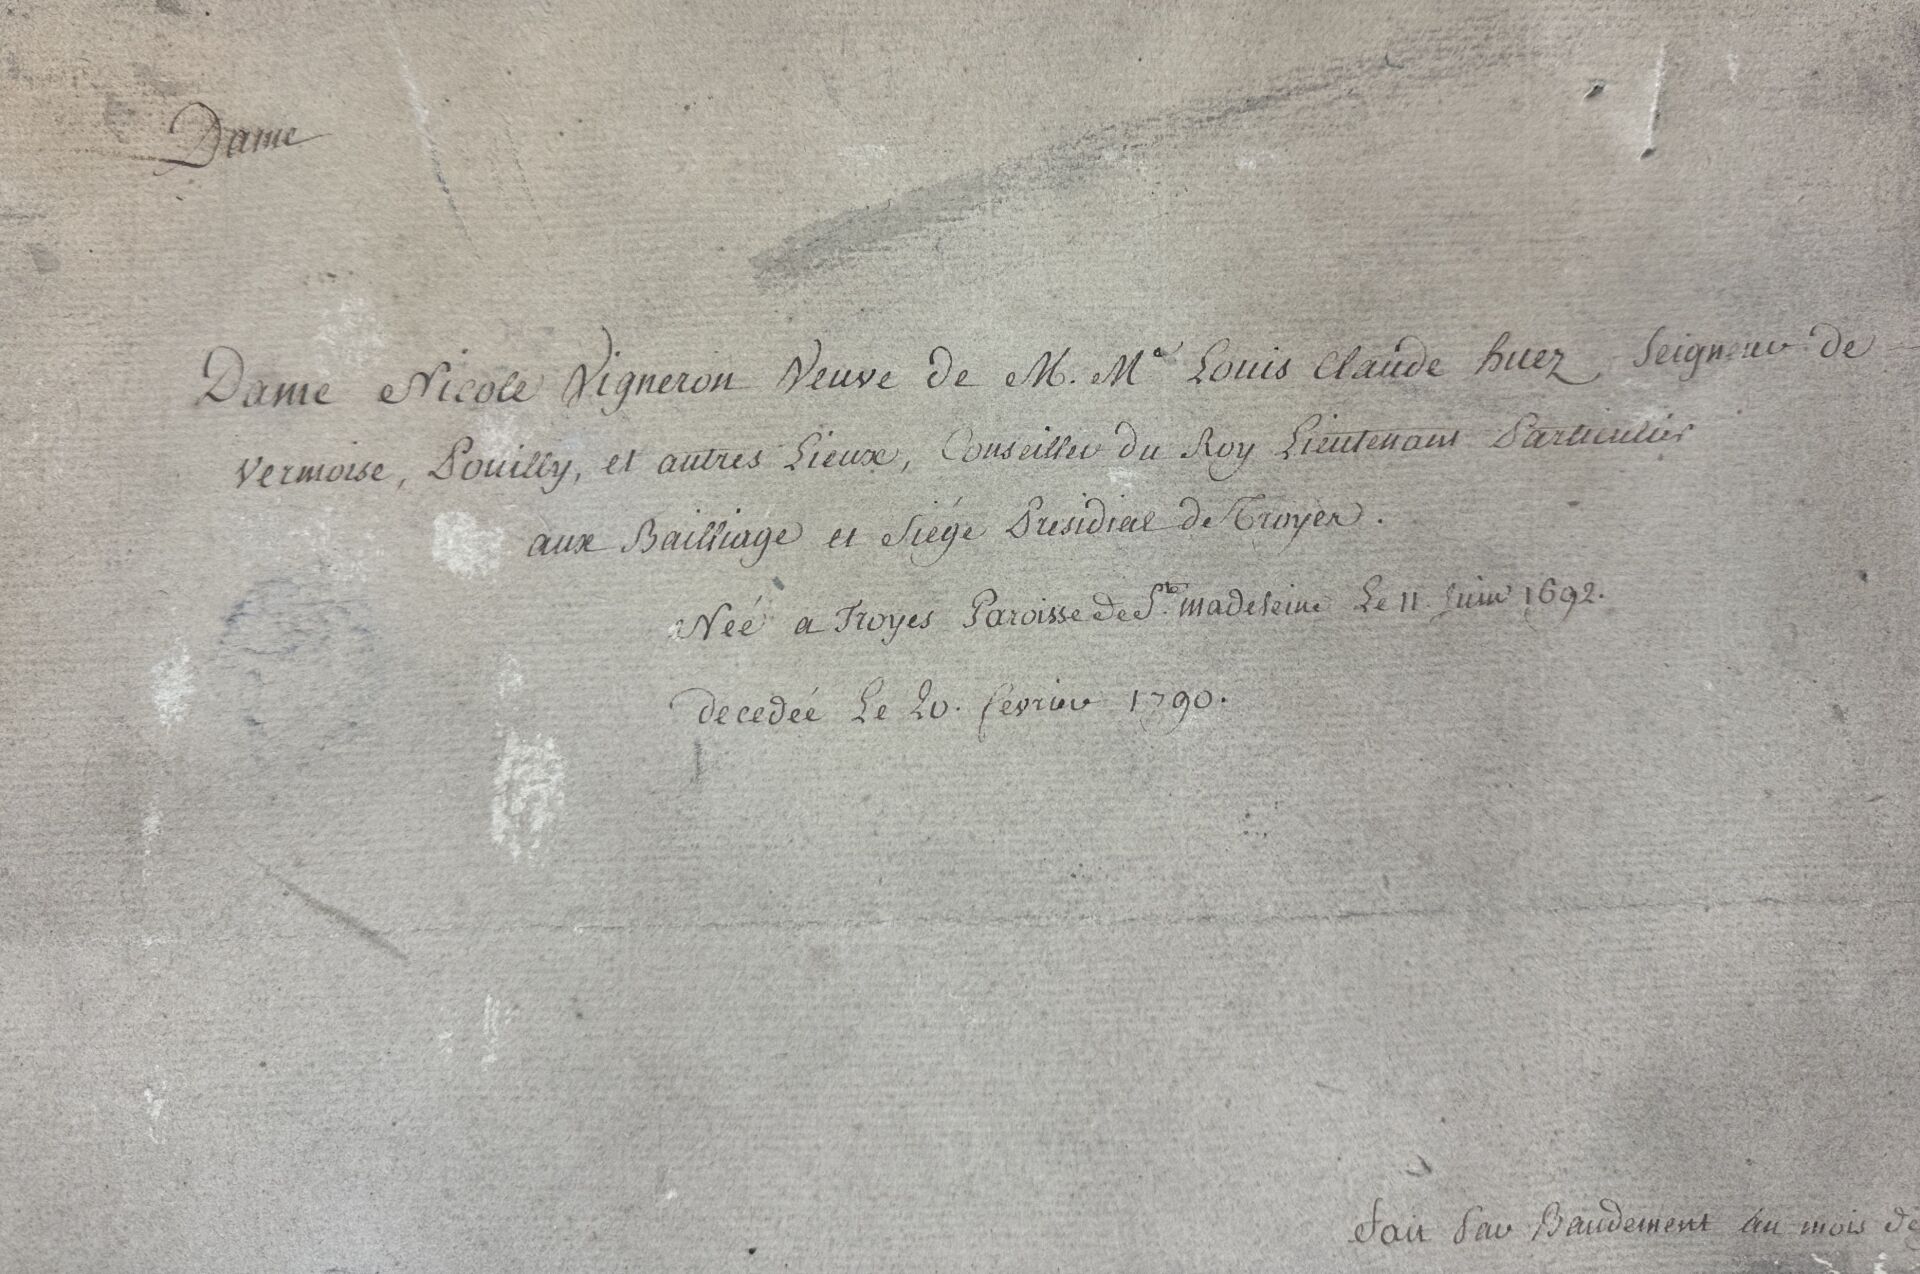 Dame
Dame Nicole Vigneron Veuve de M. Me Louis Claude huez Seigneur de
Vermoise, Pouilly, et autres Lieux, Conseiller du Roy Lieutenant Particulier
aux Bailliage et Siége Presidial de Troyes.
Néé a Troyes Paroisse de Ste. madeleine Le 11 Juin 1692.
decedée Le 20. février 1790.
fait Par Baudement au mois de